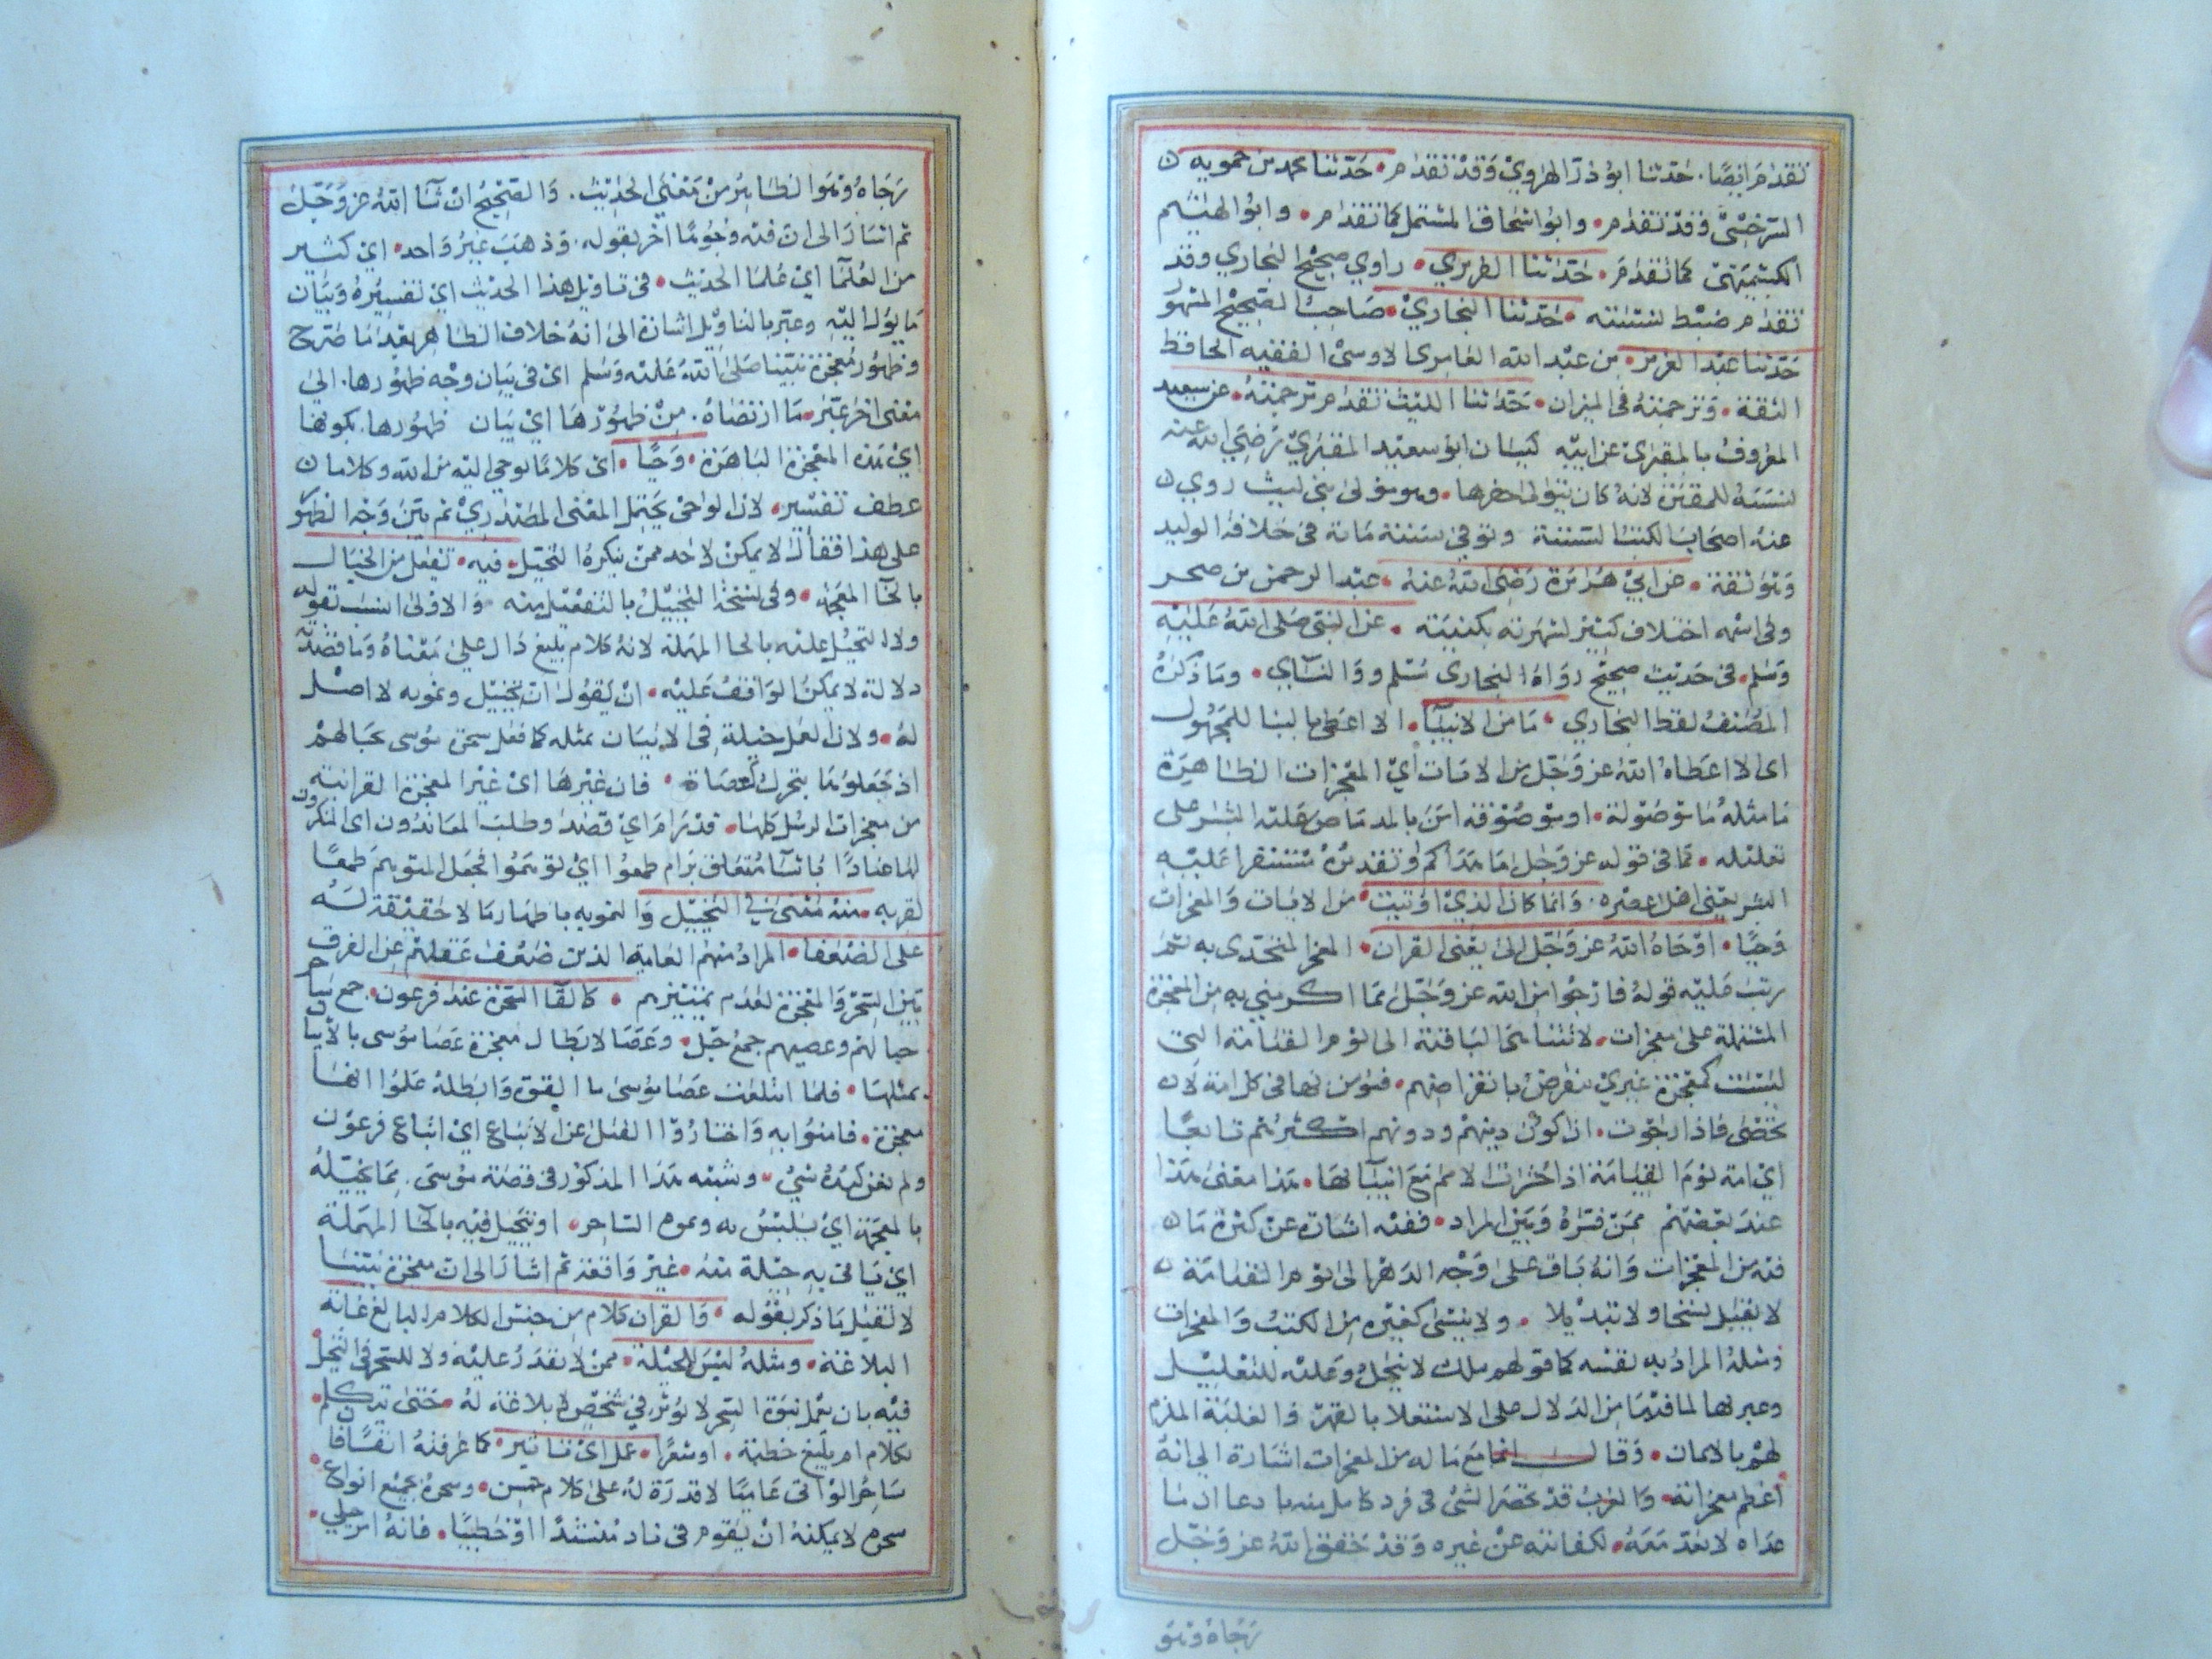 تقدم ايضا. حدثنا ابو ذر الهروي وقد تقدم • حدثنا محمد بن حمويه ن
السرخسي وقد تقدم • وابو اسحاق المستملي كما تقدم • وابو الهيثم
الكشميهني كما تقدم • حدثنا الفربري • راوي صحيح البخاري وقد
تقدم ضبط نسبته • حدثنا البخاري • صاحب الصحيح المشهور
حدثنا عبد العزيز • بن عبد الله العامري الاوسي الفقيه الحافظ
الثقة • وترجمته في الميزان • حدثنا الليث تقدم ترجمته • عن سعيد
المعروف بالمقبري عن ابيه كيسان ابو سعيد المقبري رضي الله عنه
نسبته للمقبرة لانه كان يتولى حفرها • وهو مولى بني ليث روي ن
عنه اصحاب الكتب الستة وتوفي سنة مائة في خلافة الوليد
وهو ثقة • عن ابي هريرة رضي الله عنه • عبد الرحمن بن صخر
وفي اسمه اختلاف كثير لشهرته بكنيته • عن النبي صلى الله عليه
وسلم • في حديث صحيح رواه البخاري ومسلم والنسائي • وما ذكره
المصنف لفظ البخاري • ما من الانبياء • الا اعطي بالبنا للمجهول
اى الا اعطاه الله عز وجل من الايات اي المعجزات الظاهرة
ما مثله ما موصولة • او موصوفة امن بالمد ماض عليه البشر على
تعليله • كما في قوله عز وجل كما هداكم وتقديره مستقرا عليه
البشر يعني اهل عصره. وانما كان الذي اوتيت • من الايات والمعجزات
وحيا • اوحاه الله عز وجل الي يعني القران • المعجز المتحدى به ثم
رتب عليه قوله فارجوا من الله عز وجل مما اكرمني به من المعجزة
المشتملة على معجزات • لا تتناهى الباقية الى يوم القيامة التي
ليست كمعجزة غيري تنقرض بانقراضهم • فيؤمن بها في كل امة لان
تحصى فاذا رجوت • ان اكون دينهم ودونهم اكثرهم تابعا
اي امة يوم القيامة اذا حشرات الامم مع انبيائها • هذا معنى هذا
عند بعضهم ممن فسره وبين المراد • ففيه اشارة عن كثرة ما ن
فيه من المعجزات وانه باق على وجه الدهر الى يوم القيامة ن
لا يقبل نسخا ولا تبديلا • ولا ينسى كغيره من الكتب والمعجزات
ومثله المراد به نفسه كما قولهم مثلك لا يبخل وعليه للتعليل
وعبر بها لما فيها من الدلالة على الاستعلا بالقهر والغلبة الملزم
لهم بالايمان • وقال انما مع ما له من المعجزات اشارة الى انه
اعظم معجزاته • والعرب قد تحصر الشئ في فرد كامل منه بادعا ان ما
عداه لا يعد معه • لكفايته عن غيره وقد حقق الله عز وجل
رجاه وهو
رجاه وهو الظاهر من معنى الحديث. والصحيح ان شا الله عز وجل
ثم اشار الى ان فيه وجوها اخر بقوله. وذهب غير واحد • اي كثير
من العلما اي علما الحديث • في تاويل هذا الحديث اي تفسيره وبيان
ما يؤل اليه وعبر بالتاويل اشارة الى انه خلاف الظاهر بعد ما صرح
وظهور معجزة نبينا صلى الله عليه وسلم اى في بيان وجه ظهورها. الى
معنى اخر غير • ما ارتضاه. من ظهورها اي بيان ظهورها. بكونها
اي هذه المعجزة الباهرة • وحيا • اى كلاما يوحى اليه من الله وكلاما ن
عطف تفسير • لان الوحي يحتمل المعنى المصدري ثم بين وجه الظهور
على هذا فقال لا يمكن لاحد ممن ينكره التخيل • فيه • تفعل من الخيال
بالخا المعجمة • وفي نسخة التخييل بالتفعيل منه والاولى انسب بقوله
ولا التحيل عليه بالحا المهملة لانه كلام بليغ دال على معناه وما قصد به
دلالة لا يمكن الواقف عليه • ان يقول ان تخييل وتمويه لا اصل
له • ولا ان لعمل حيلة في الاتيان بمثله كما فعل سحرة موسى بحبالهم
اذ جعلوها بتحرك عصاة • فان غيرها اى غير المعجزة القرانية
من معجزات الرسل كلها • قد رام اي قصد وطلب المعاندون اى المنكرون
لها عنادا باشيا متعلق برام طمعوا اي توهموا فجعل المتوهم طمعا
لقربه • منه معنى في التخييل والتمويه باظهار ما لا حقيقة له
على الضعفا • المراد منهم العامة الذين ضعف عقلهم عن الفرق
بين السحر والمعجزة لعدم تمييزهم • كالقا السحرة عند فرعون •
حبالهم وعصيهم جمع حبل • وعصا لابطال معجزة عصا موسى بالاتيان
بمثلها • فلما ابتلعت عصا موسى ما القوه وابطله علموا انها
معجزة • فامنوا به واختاروا القتل عن الاتباع اي اتباع فرعون
ولم يغن كيده شي • وشبه هذا المذكور في قصة موسى. مما يخيله
بالمعجمة اي يلبس به ويموه الساحر • او يتحيل فيه بالحا المهملة
اي ياتي به حيلة منه • غير واقعة ثم اشار الى ان معجزة نبينا
لا تقبل ما ذكر بقوله • والقران كلام من جنس الكلام البالغ غاية
البلاغة • ومثله ليس للحيلة • ممن لا يقدر عليه ولا للسحر في التخيل
فيه بان يعمل بقوة السحر لا يؤثر في شخص لا بلاغة له • حتى تكلم •
بكلام او بليغ خطبة. او شعرا • عمل اي تاثير • كما عرفته انفا فان
ساحرا لو اتى عاميا لا قدرة له على كلام حسن • وسحره بجميع انواع
سحره لا يمكنه ان يقوم في ناد منشدا او خطيبا • فانه امر جلي •